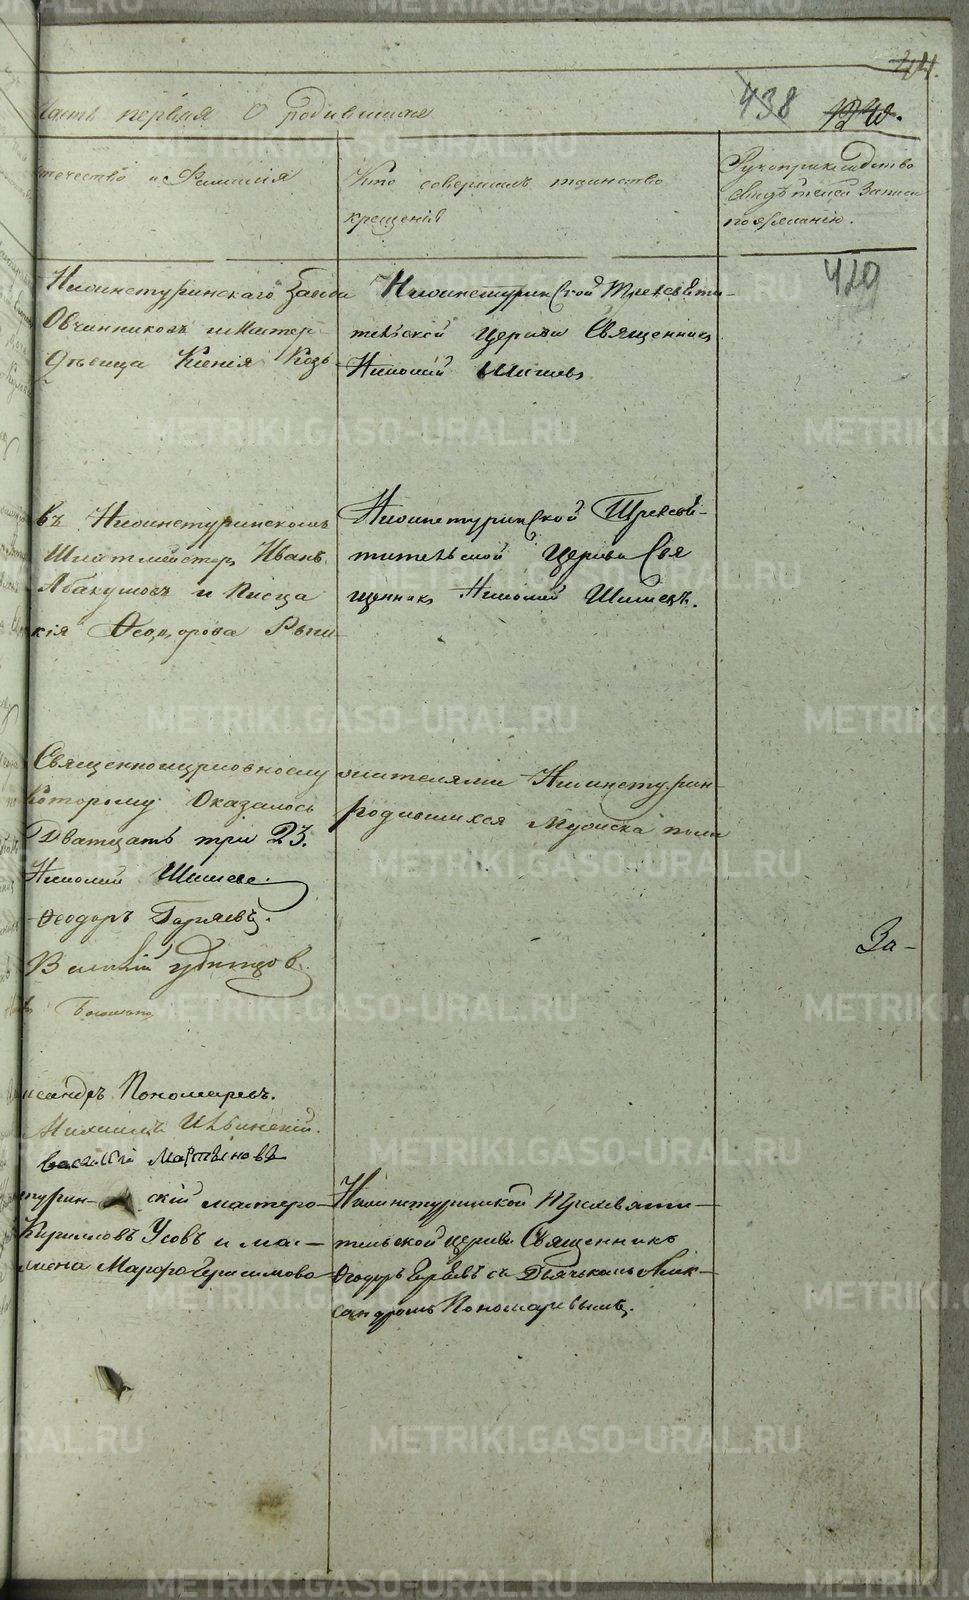 44.
438
1240.
Часть первая О родившихся
течество и Фамилія
Кто совершалъ таинство
крещенія
Рукоприкладство
свидѣтелей записи
по желанію.
420
Нижнетуринскаго Завода
Овчинниковъ и Матер
Дѣвица Ксенія Козь
Нижнетуринской Трехсвяти-
тельской Церкви Священникъ
Николай Шишевъ
въ Нижнетуринскомъ
Иванъ
Абакумовъ и
кія Феодорова
Нижнетуринской Трехсвя-
тительской Церкви Свя
щенникъ Николай Шишевъ.
Священноцерковнослу
которому Оказалось
Дватцать три 23.
Николай Шишевъ.
Феодоръ
Василій Удинцов
жителями Нижнетурин-
родившихся Мужска пола
За-
ксандръ Пономаревъ.
Михаилъ Ильинскій.
Василій Мартыновъ
турин- скій мастеро-
Кирилловъ Усовъ и
Марфа Герасимова
Нижнетуринской Трехсвяти-
тельской церкви Священникъ
Феодоръ съ Дьячькомъ Алек-
сандромъ Пономаревымъ.
METRIKI.GASO-URAL.RU